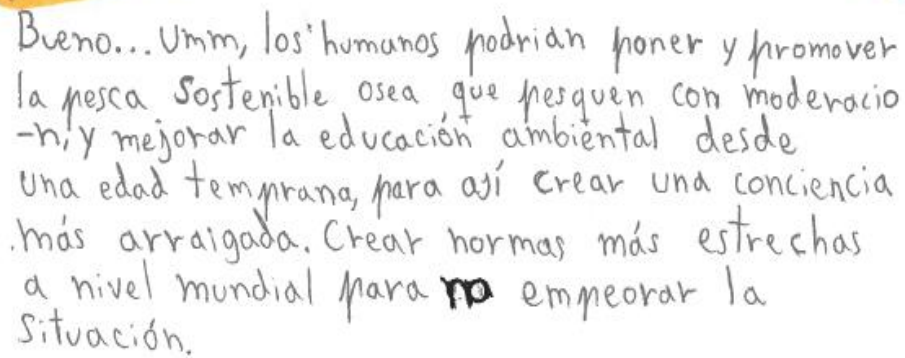 Bueno... Umm, los humanos podrian poner y promover
la pesca Sostenible osea que pesquen con moderacio
-n, y mejorar la educación ambiental desde
una edad temprana, para así crear una conciencia
más arraigada. Crear normas más estrechas
a nivel mundial para no empeorar la
situación.